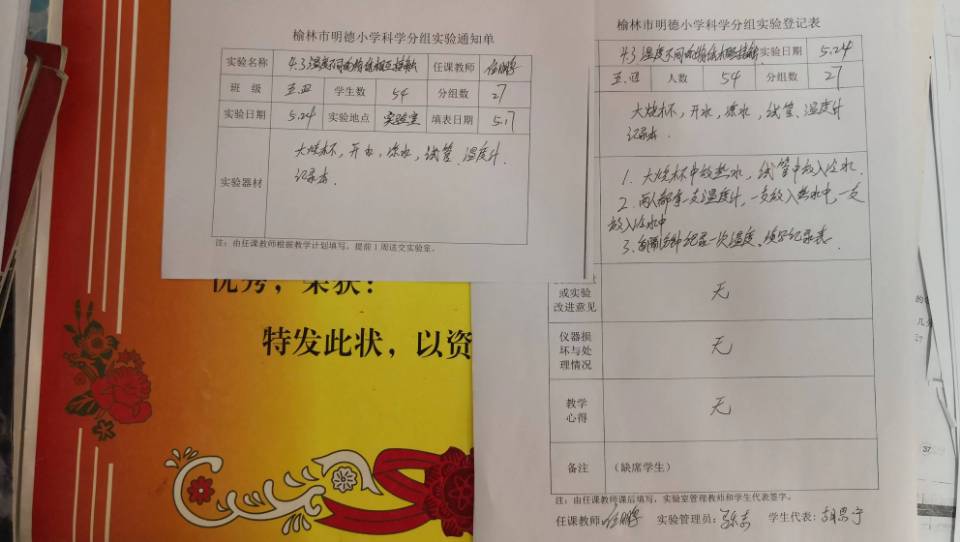 榆林市明德小学科学分组实验通知单
实验名称 4.3温度不同的物体相互接触 任课教师
班 级 五.四 学生数 54 分组数 27
实验日期 5.24 实验地点 实验室 填表日期 5.17
实验器材 大烧杯，开水，凉水，试管、温度计
记录表．
注：由任课教师根据教学计划填写，提前1周送交实验室。
榆林市明德小学科学分组实验登记表
4.3温度不同的物体相互接触 实验日期 5.24
五.四 人数 54 分组数 27
大烧杯，开水，凉水，试管、温度计
记录表．
1. 大烧杯中放热水，试管中放入冷水．
2. 两人都拿一支温度计，一支放入热水中，一支
放入冷水中
3. 记录一次温度、填好记录表．
或实验
改进意见 无
仪器损
坏与处
理情况 无
教学
心得 无
备注 （缺席学生）
注：由任课教师课后填写，实验室管理教师和学生代表签字。
任课教师 实验管理员： 学生代表：胡思宁
优秀，荣获：
特发此状，以资
37